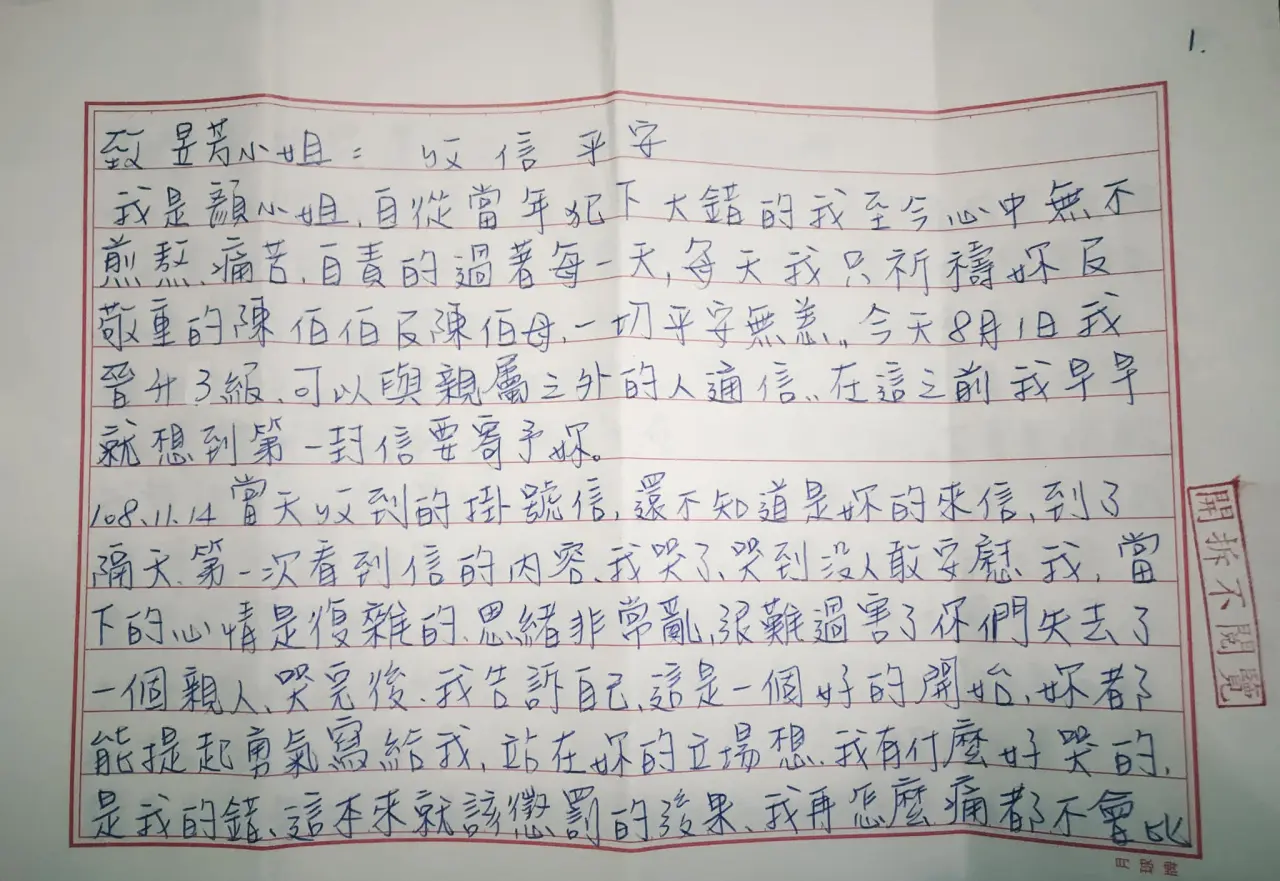 1.
致昱芳小姐: 收信平安
我是顏小姐,自從當年犯下大錯的我至今心中無不
煎熬、痛苦、自責的過著每一天,每天我只祈禱妳及
敬重的陳伯伯及陳伯母、一切平安無恙,,今天8月1日我
晉升3級、可以與親屬之外的人通信,,在這之前我早早
就想到第一封信要寄予妳。
108.11.14當天收到的掛號信,還不知道是妳的來信,到了
隔天、第一次看到信的內容、我哭了、哭到没人敢安慰我,當
下的心情是復雜的、思緒非常亂、很難過害了你們失去了
一個親人、哭完後、我告訴自己、這是一個好的開始、妳都
能提起勇氣寫給我,站在妳的立場想、我有什麼好哭的,
是我的錯、這本來就該懲罰的後果、我再怎麼痛都不會比
開拆不閱覽